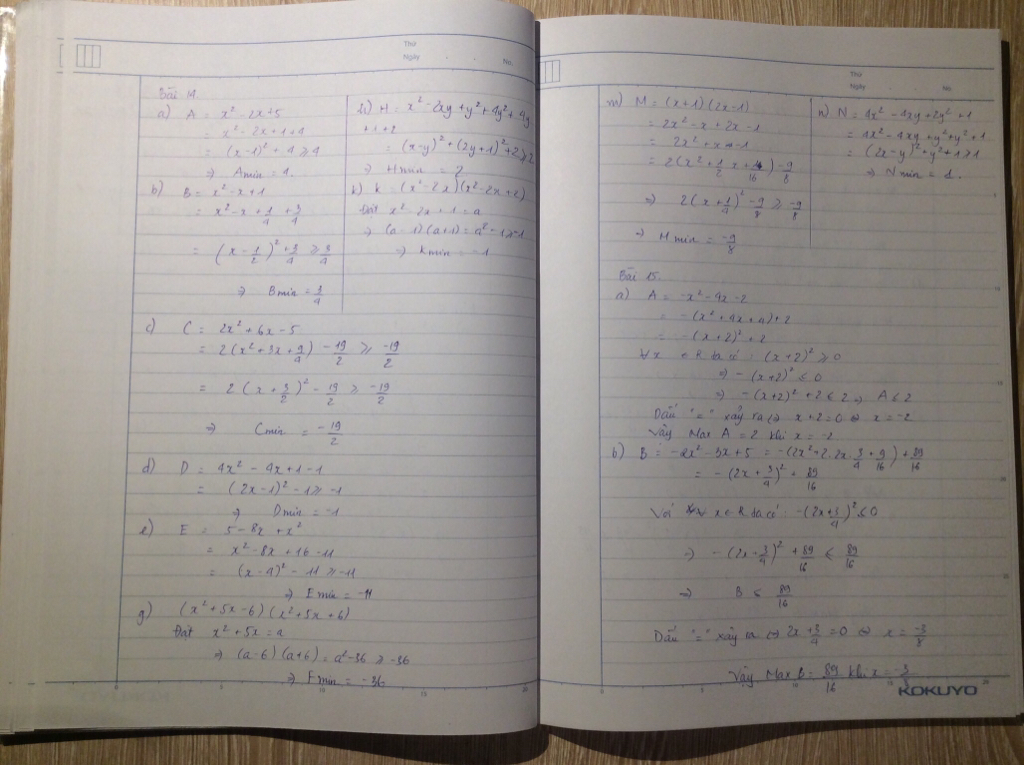 Thứ
Ngày
No.
Bài 14.
a) A = x² - 2x + 5
= x² - 2x + 1 + 4
= (x-1)² + 4 ≥ 4
⇒ Amin = 4.
b) B = x² - x + 1
= x² - x + 1/4 + 3/4
= (x - 1/2)² + 3/4 ≥ 3/4
⇒ Bmin = 3/4
h) H = x² - 2xy + y² + 4y² + 4y
+ 1 + 2
= (x-y)² + (2y+1)² + 2 ≥ 2
⇒ Hmin = 2
k) K = (x² - 2x)(x² - 2x + 2)
Đặt x² - 2x + 1 = a
⇒ (a-1)(a+1) = a² - 1 ≥ -1
⇒ Kmin = -1
c) C = 2x² + 6x - 5
= 2(x² + 3x + 9/4) - 19/2 ≥ -19/2
= 2(x + 3/2)² - 19/2 ≥ -19/2
⇒ Cmin = -19/2
d) D = 4x² - 4x + 1 - 1
= (2x-1)² - 1 ≥ -1
⇒ Dmin = -1
e) E = 5 - 8x + x²
= x² - 8x + 16 - 11
= (x-4)² - 11 ≥ -11
⇒ Emin = -11
g) (x² + 5x - 6)(x² + 5x + 6)
Đặt x² + 5x = a
⇒ (a-6)(a+6) = a² - 36 ≥ -36
⇒ Fmin = -36
0 10 15 20
Thứ
Ngày
No.
m) M = (x+1)(2x-1)
= 2x² - x + 2x - 1
= 2x² + x - 1
= 2(x² + 1/2 x + 1/16) - 9/8
⇒ 2(x + 1/4)² - 9/8 ≥ -9/8
⇒ Mmin = -9/8
n) N = 4x² - 4xy + 2y² + 1
= 4x² - 4xy + y² + y² + 1
= (2x-y)² + y² + 1 ≥ 1
⇒ Nmin = 1.
Bài 15.
a) A = -x² - 4x - 2
= -(x² + 4x + 4) + 2
= -(x+2)² + 2
∀x ∈ R ta có: (x+2)² ≥ 0
⇒ -(x+2)² ≤ 0
⇒ -(x+2)² + 2 ≤ 2 ⇒ A ≤ 2
Dấu "=" xảy ra ⇔ x+2=0 ⇔ x = -2
Vậy Max A = 2 khi x = -2
b) B = -2x² - 3x + 5 = -(2x² + 2.2x.3/4 + 9/16) + 89/16
= -(2x + 3/4)² + 89/16
Với ∀ x ∈ R ta có: -(2x + 3/4)² ≤ 0
⇒ -(2x - 3/4)² + 89/16 ≤ 89/16
⇒ B ≤ 89/16
Dấu "=" xảy ra ⇔ 2x + 3/4 = 0 ⇔ x = -3/8
Vậy Max B = 89/16 khi x = -3/8
0 5 10 15 20
KOKUYO